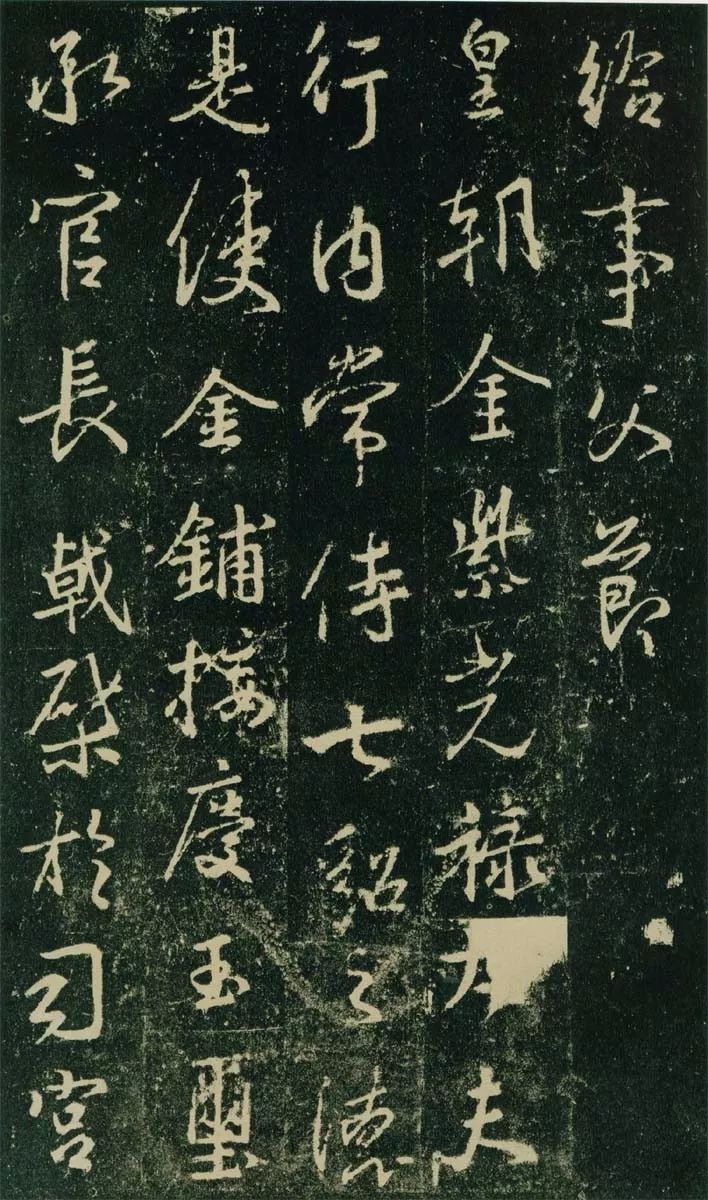 給事父節
皇朝金紫光祿大夫
行內常侍七貂之德
是使金鋪接慶玉璽
承官長戟棨於司宫